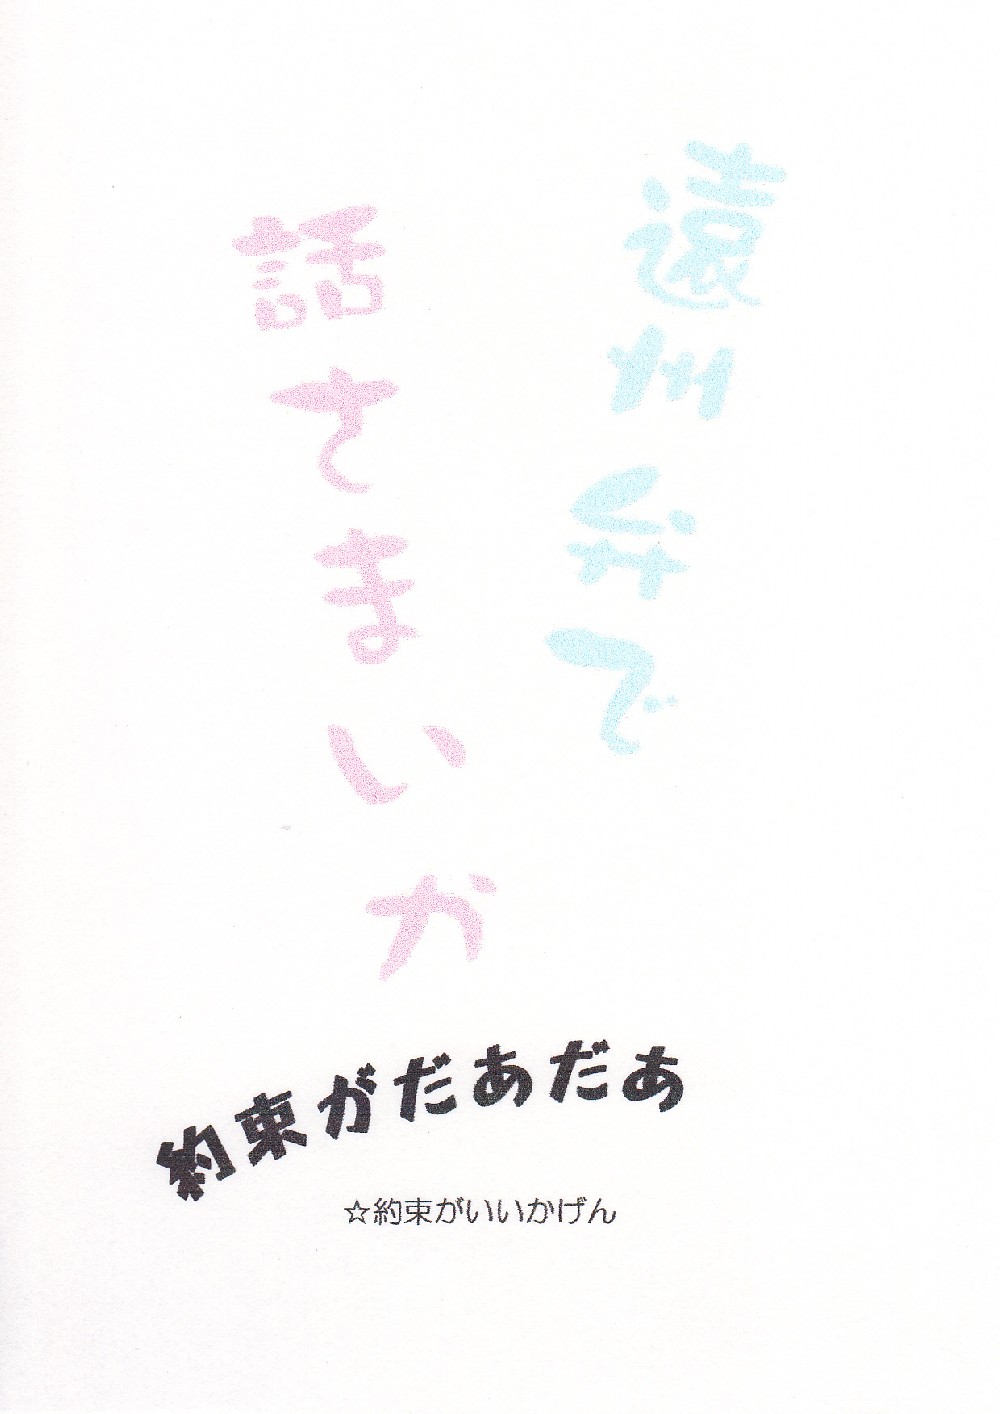 遠州弁で
話さまいか
約束がだあだあ
☆約束がいいかげん